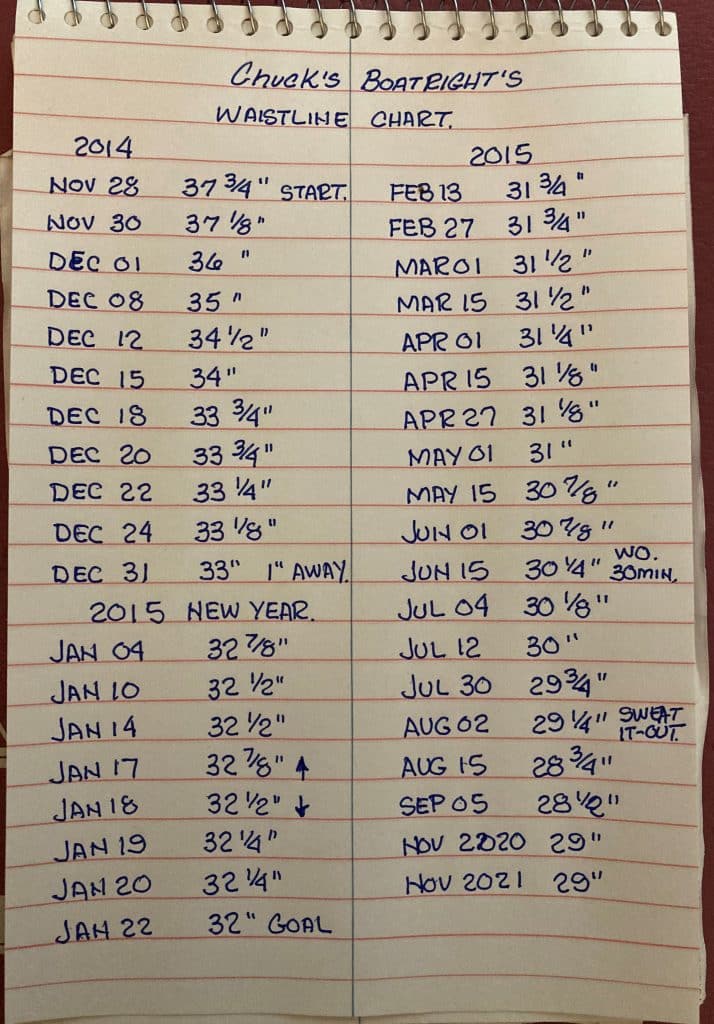 Chuck's BOATRIGHT'S
WAISTLINE CHART.
2014
NOV 28 37 3/4" START.
NOV 30 37 1/8"
DEC 01 36 "
DEC 08 35 "
DEC 12 34 1/2"
DEC 15 34"
DEC 18 33 3/4"
DEC 20 33 3/4"
DEC 22 33 1/4"
DEC 24 33 1/8"
DEC 31 33" 1" AWAY.
2015 NEW YEAR.
JAN 04 32 7/8"
JAN 10 32 1/2"
JAN 14 32 1/2"
JAN 17 32 7/8" ↑
JAN 18 32 1/2" ↓
JAN 19 32 1/4"
JAN 20 32 1/4"
JAN 22 32" GOAL
2015
FEB 13 31 3/4"
FEB 27 31 3/4"
MAR 01 31 1/2"
MAR 15 31 1/2"
APR 01 31 1/4"
APR 15 31 1/8"
APR 27 31 1/8"
MAY 01 31"
MAY 15 30 7/8"
JUN 01 30 7/8"
JUN 15 30 1/4" WO. 30MIN.
JUL 04 30 1/8"
JUL 12 30"
JUL 30 29 3/4"
AUG 02 29 1/4" SWEAT IT-OUT.
AUG 15 28 3/4"
SEP 05 28 1/2"
NOV 2020 29"
NOV 2021 29"